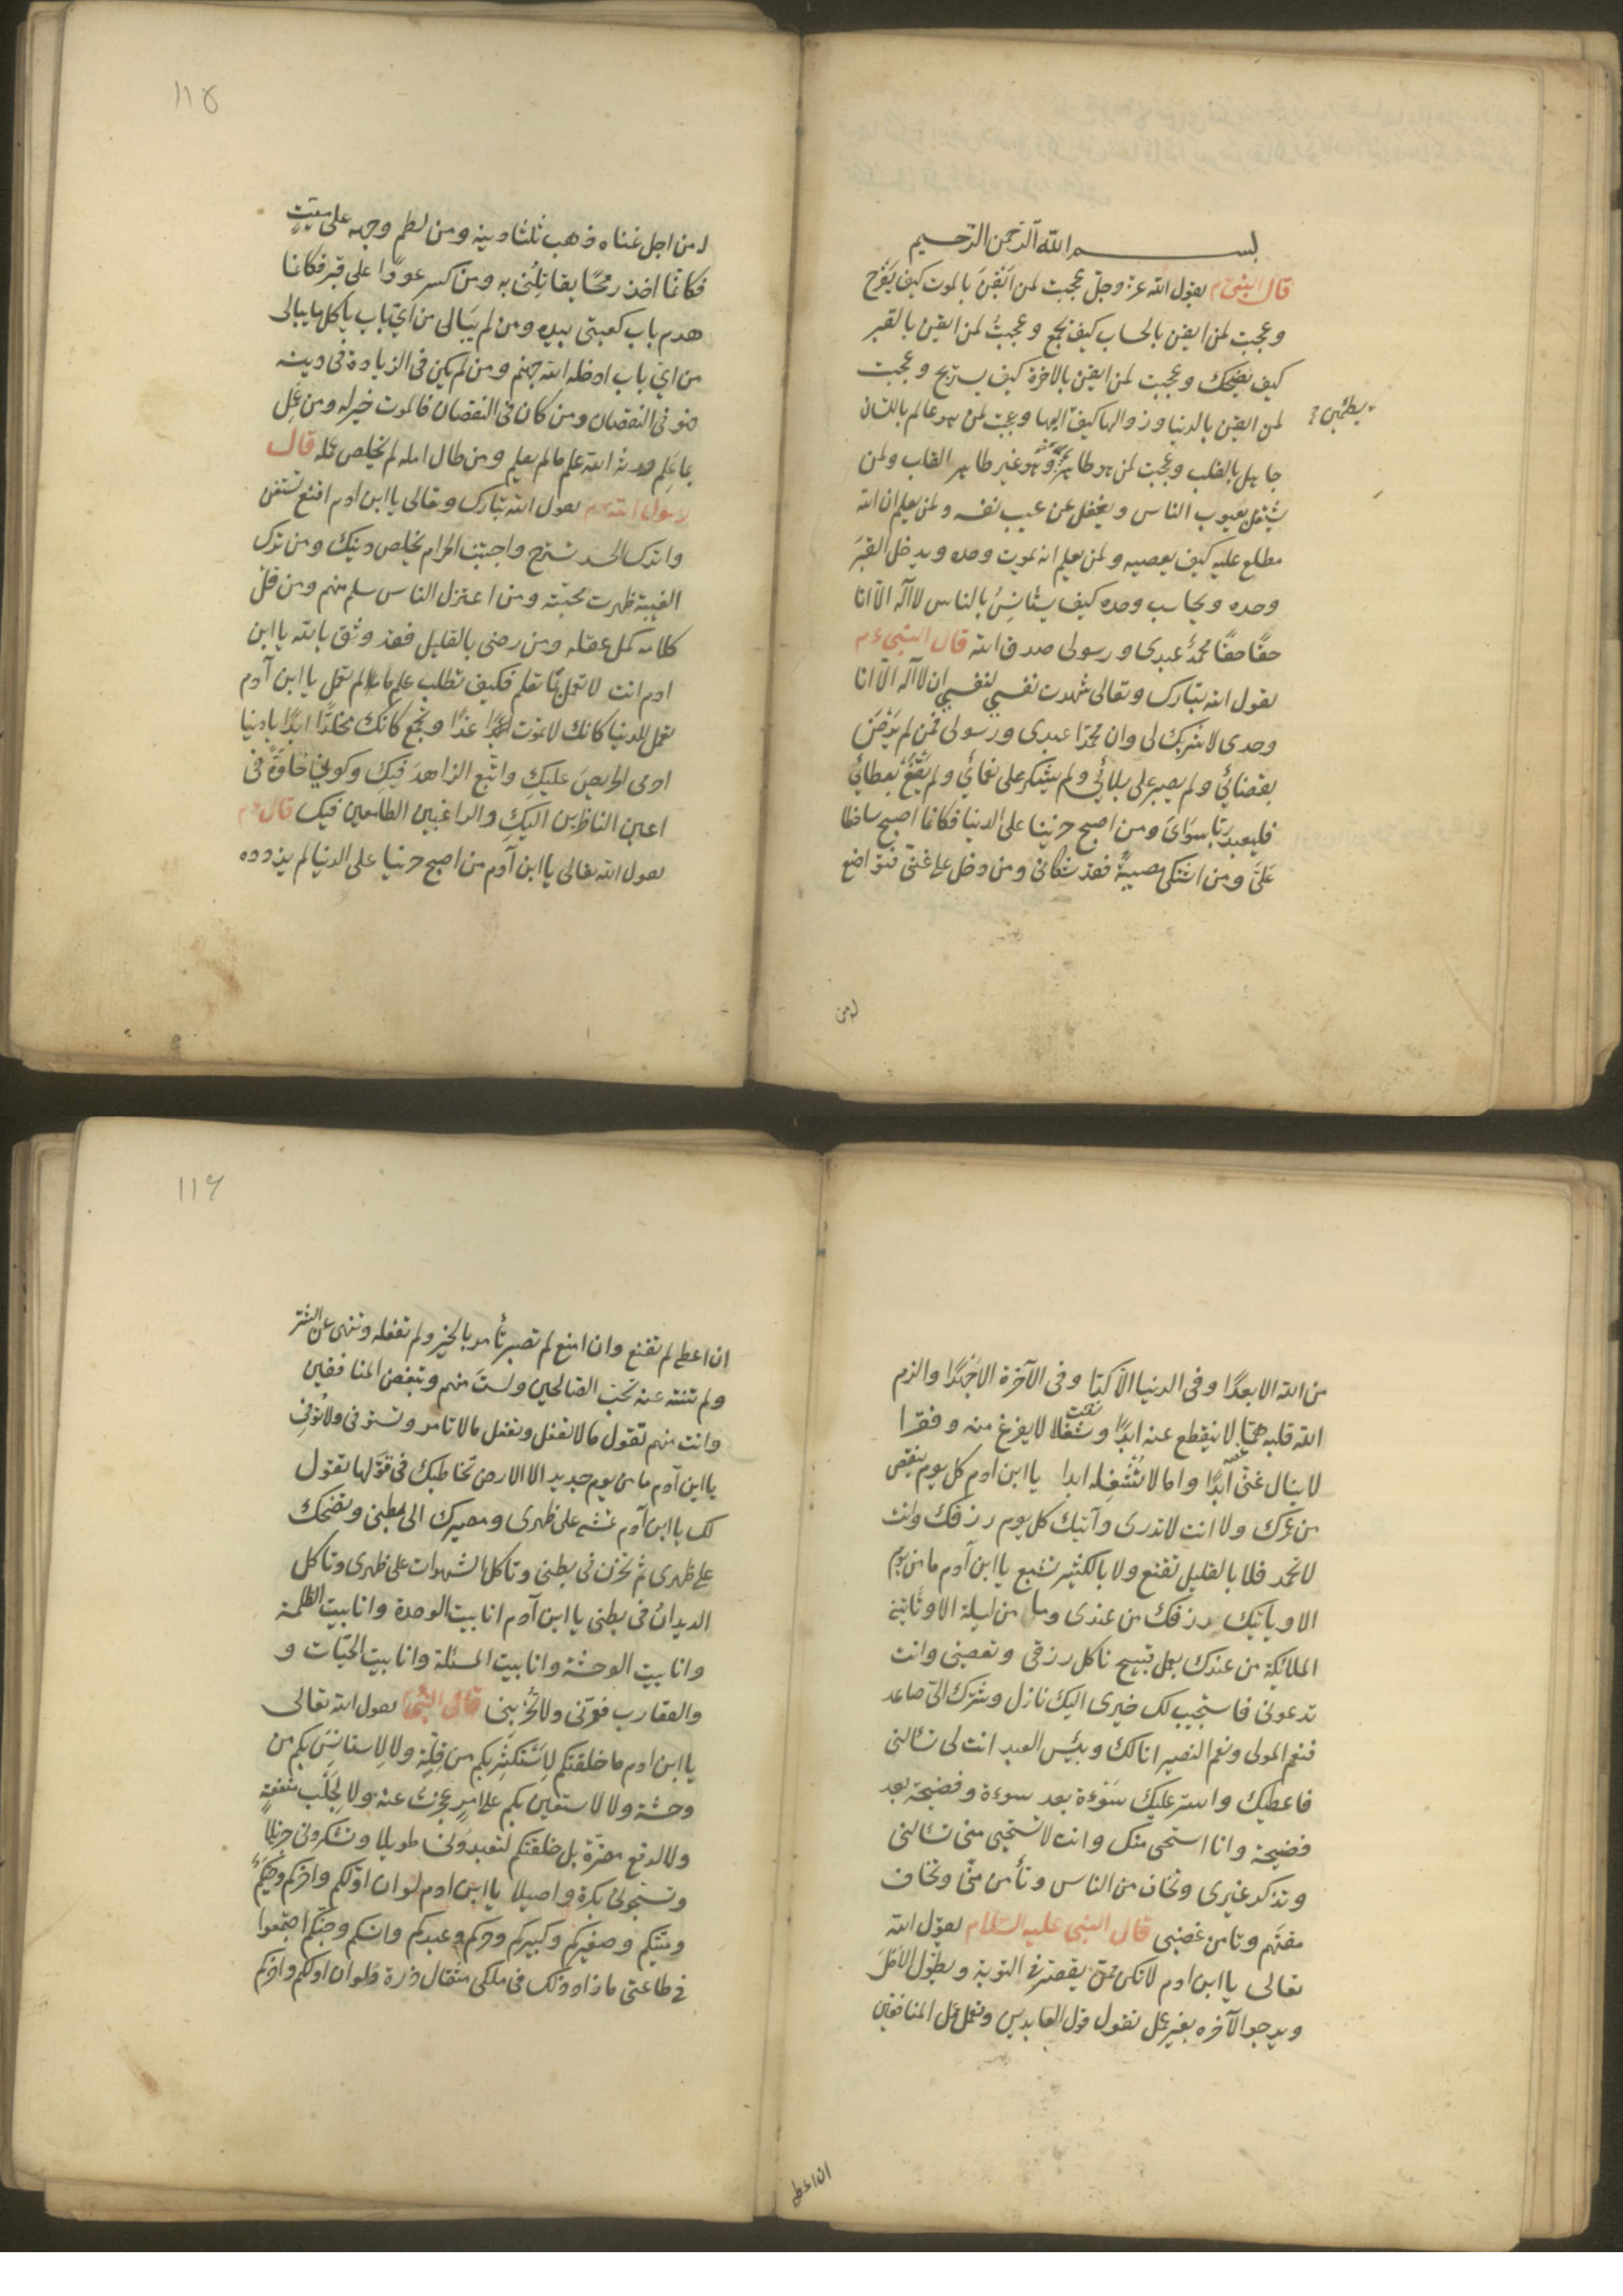 بسم الله الرحمن الرحيم
قال النبي ءم يقول الله عز وجل عجبت لمن ايقن بالموت كيف يفرح
وعجبت لمن ايقن بالحساب كيف يجمع وعجبت لمن ايقن بالقبر
كيف يضحك وعجبت لمن ايقن بالاخرة كيف يستريح وعجبت
لمن ايقن بالدنيا وزوالها كيف اليها وعجبت لمن هو عالم باللسان
يطمئن
جاهل بالقلب وعجبت لمن هو طاهر وهو غير طاهر القلب ولمن
يشتغل بعيوب الناس ويغفل عن عيب نفسه ولمن يعلم ان الله
مطلع عليه كيف يعصيه ولمن يعلم انه يموت وحده ويدخل القبر
وحده ويحاسب وحده كيف يستأنس بالناس لا اله الا انا
حقا حقا محمد عبدى ورسولى صدق الله قال النبي ءم
يقول الله تبارك وتعالى شهدت نفسي لنفسي ان لا اله الا انا
وحدى لا شريك لى وان محمدا عبدى ورسولى فمن لم يرض
بقضائي ولم يصبر على بلائي ولم يشكر على نعمائي ولم يقنع بعطائي
فليعبد ربا سوائ ومن اصبح حزينا على الدنيا فكانما اصبح ساخطا
علي ومن اشتكى مصيبة فقد شكانى ومن دخل على غنى فتواضع
له من
١١٥
له من اجل غناه ذهب ثلثا دينه ومن لطم وجهه على ميت
فكانما اخذ رمحا يقاتلنى به ومن كسر عودا على قبر فكانما
هدم باب كعبتى بيده ومن لم يبالى من اى باب ياكل ما يبالى
من اى باب ادخله الله جهنم ومن لم يكن فى الزيادة فى دينه
فهو فى النقصان ومن كان فى النقصان فالموت خير له ومن عمل
بما علم ورثه الله علم ما لم يعلم ومن طال امله لم يخلص عمله قال
رسول الله ءم يقول الله تبارك وتعالى يا ابن ادم اقنع تستغن
واترك الحسد تسترح واجتنب الحرام يخلص دينك ومن ترك
الغيبة ظهرت محبته ومن اعتزل الناس سلم منهم ومن قل
كلامه كمل عقله ومن رضى بالقليل فقد وثق بالله يا ابن
ادم انت لا تعمل بما تعلم فكيف تطلب علم ما لم تعمل يا ابن آدم
تعمل للدنيا كانك لا تموت غدا وتجمع كانك مخلدا ابدا يا دنيا
احرمى الحريص عليك واتبع الزاهد فيك وكونى حلوة فى
اعين الناظرين اليك والراغبين الطامعين فيك قال ءم
يقول الله تعالى يا ابن آدم من اصبح حزينا على الدنيا لم يزدده
من الله الا بعدا وفى الدنيا الا كدا وفى الآخرة الا جهدا والزم
الله قلبه هما لا ينقطع عنه ابدا وشغلا لا يفرغ منه وفقرا
لا ينال غنى ابدا واملا لا تشغله ابدا يا ابن ادم كل يوم ينقص
من عمرك ولا انت لا تدرى وآتيك كل يوم رزقك وانت
لا تحمد فلا بالقليل تقنع ولا بالكثير تشبع يا ابن آدم ما من يوم
الا وياتيك رزقك من عندى وما من ليلة الا وتاتينى
الملائكة من عندك بعمل قبيح تاكل رزقى وتعصنى وانت
تدعونى فاستجيب لك خيرى اليك نازل وشرك الى صاعد
فنعم المولى ونعم النصير انا لك وبئس العبد انت لى تسالنى
فاعطيك واستر عليك سوءة بعد سوءة وفضيحة بعد
فضيحة وانا استحى منك وانت لا تستحيى منى تسالنى
وتذكر غيرى وتخاف من الناس وتأمن منى وتخاف
مقتهم وتامن غضبى قال النبى عليه السلام يقول الله
تعالى يا ابن ادم لا تكن ممن يقصر فى التوبة ويطول الامل
ويرجوا الآخره بغير عمل تقول قول العابدين وتعمل عمل المنافقين
ان اعطى
١١٦
ان اعطى لم تقنع وان امنع لم تصبر تأمر بالخير ولم تفعله وتنهى عن الشر
ولم تنته عنه تحب الصالحين ولست منهم وتبغض المنافقين
وانت منهم تقول ما لا تفعل وتفعل ما لا تامر وتستوفى ولا توفى
يا ابن آدم ما من يوم جديد الا الارض تخاطبك فى قولها تقول
لك يا ابن آدم تمشى على ظهرى ومصيرك الى بطنى وتضحك
على ظهرى ثم تحزن فى بطنى وتاكل الشهوات على ظهرى وتاكل
الديدان فى بطنى يا ابن آدم انا بيت الوحدة وانا بيت الظلمة
وانا بيت الوحشة وانا بيت المسئلة وانا بيت الحيات و
والعقارب فعمرنى ولا تخربنى قال النبى يقول الله تعالى
يا ابن ادم ما خلقتكم لاستكثر بكم من قلة ولا لاستانس بكم من
وحشة ولا لاستعين بكم على امر عجزت عنه ولا لجلب منفعة
ولا لدفع مضرة بل خلقتكم لتعبدونى طويلا وتشكرونى جزيلا
وتسبحونى بكرة واصيلا يا ابن ادم لو ان اولكم واخركم وحيكم
وميتكم وصغيركم وكبيركم وحركم وعبدكم وانسكم وجنكم اجتمعوا
فى طاعتى ما زاد ذلك فى ملكى مثقال ذرة ولو ان اولكم واخركم